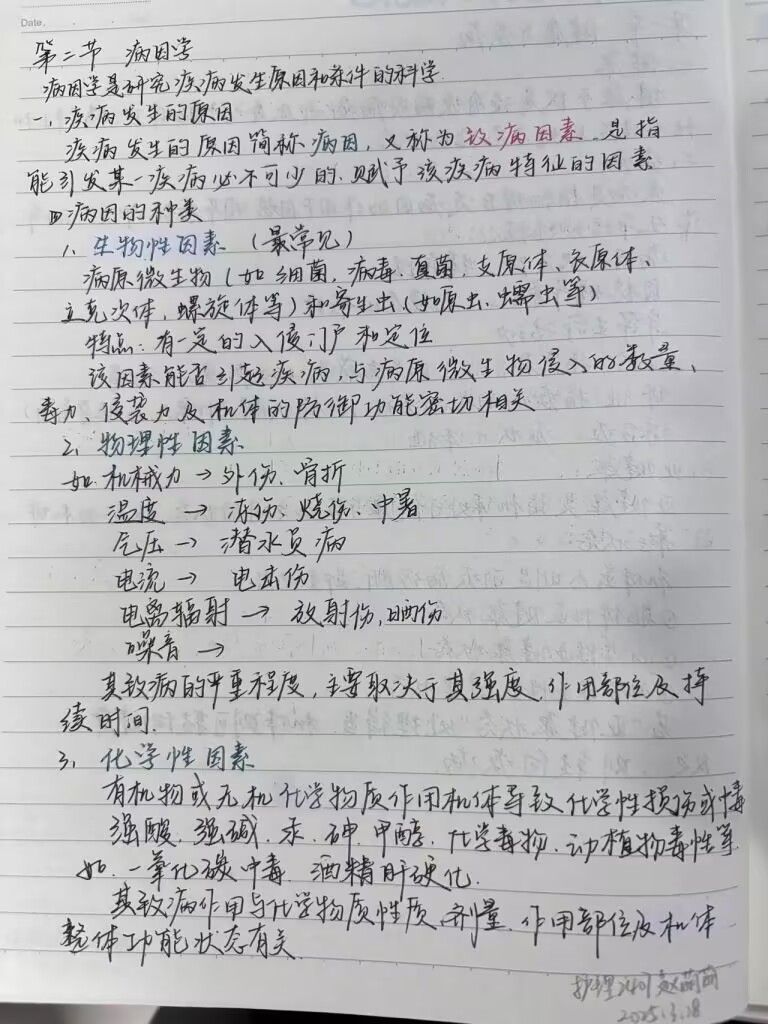 Date.
第二节 病因学
病因学是研究疾病发生原因和条件的科学.
一、疾病发生的原因
疾病发生的原因简称病因,又称为致病因素.是指
能引发某一疾病必不可少的、赋予该疾病特征的因素
病因的种类
1、生物性因素 (最常见)
病原微生物(如细菌、病毒、真菌、支原体、衣原体、
立克次体、螺旋体等)和寄生虫(如原虫、蠕虫等)
特点:有一定的入侵门户和定位
该因素能否引起疾病,与病原微生物侵入的数量、
毒力、侵袭力及机体的防御功能密切相关
2、物理性因素
如.机械力→外伤、骨折
温度→冻伤、烧伤、中暑
气压→潜水员病
电流→ 电击伤
电离辐射→ 放射伤,晒伤
噪音→
其致病的严重程度,主要取决于其强度、作用部位及持
续时间.
3、化学性因素
有机物或无机化学物质作用机体导致化学性损伤或中毒
强酸、强碱、汞、砷、甲醇、化学毒物、动植物毒性等
如.一氧化碳中毒 酒精肝硬化.
其致病作用与化学物质性质、剂量、作用部位及机体
整体功能状态有关.
护理2401 赵萌萌
2025.3.18